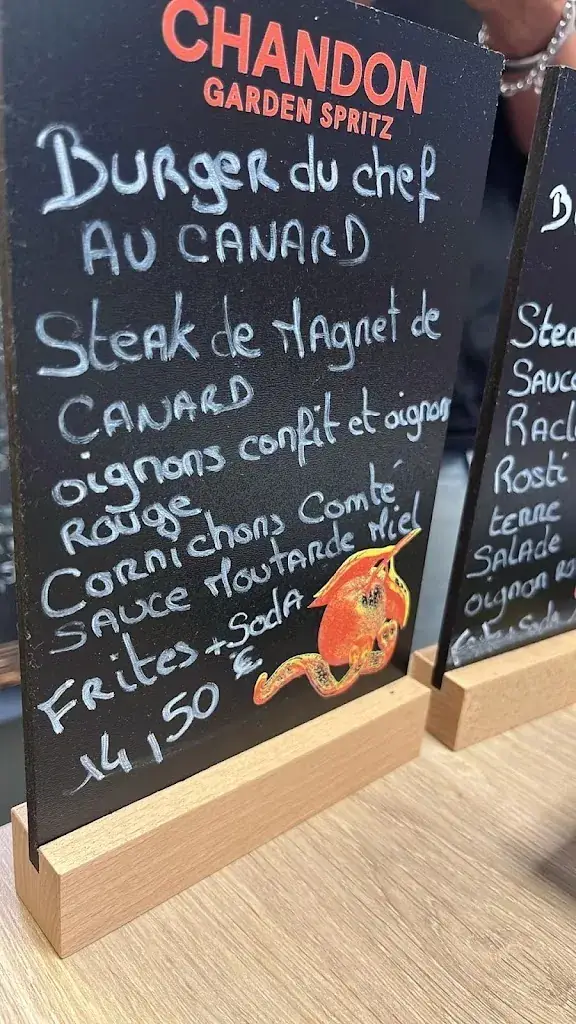 CHANDON
GARDEN SPRITZ
Burger du chef
AU CANARD
Steak de Magret de
CANARD
oignons confit et oignon
Rouge
Cornichons Comté
SAUCE Moutarde Miel
Frites + Soda
14,50 €
B
Stea
Sauce
Racl
Rosti
terre
SALADE
oignon Ro
Frites + Soda